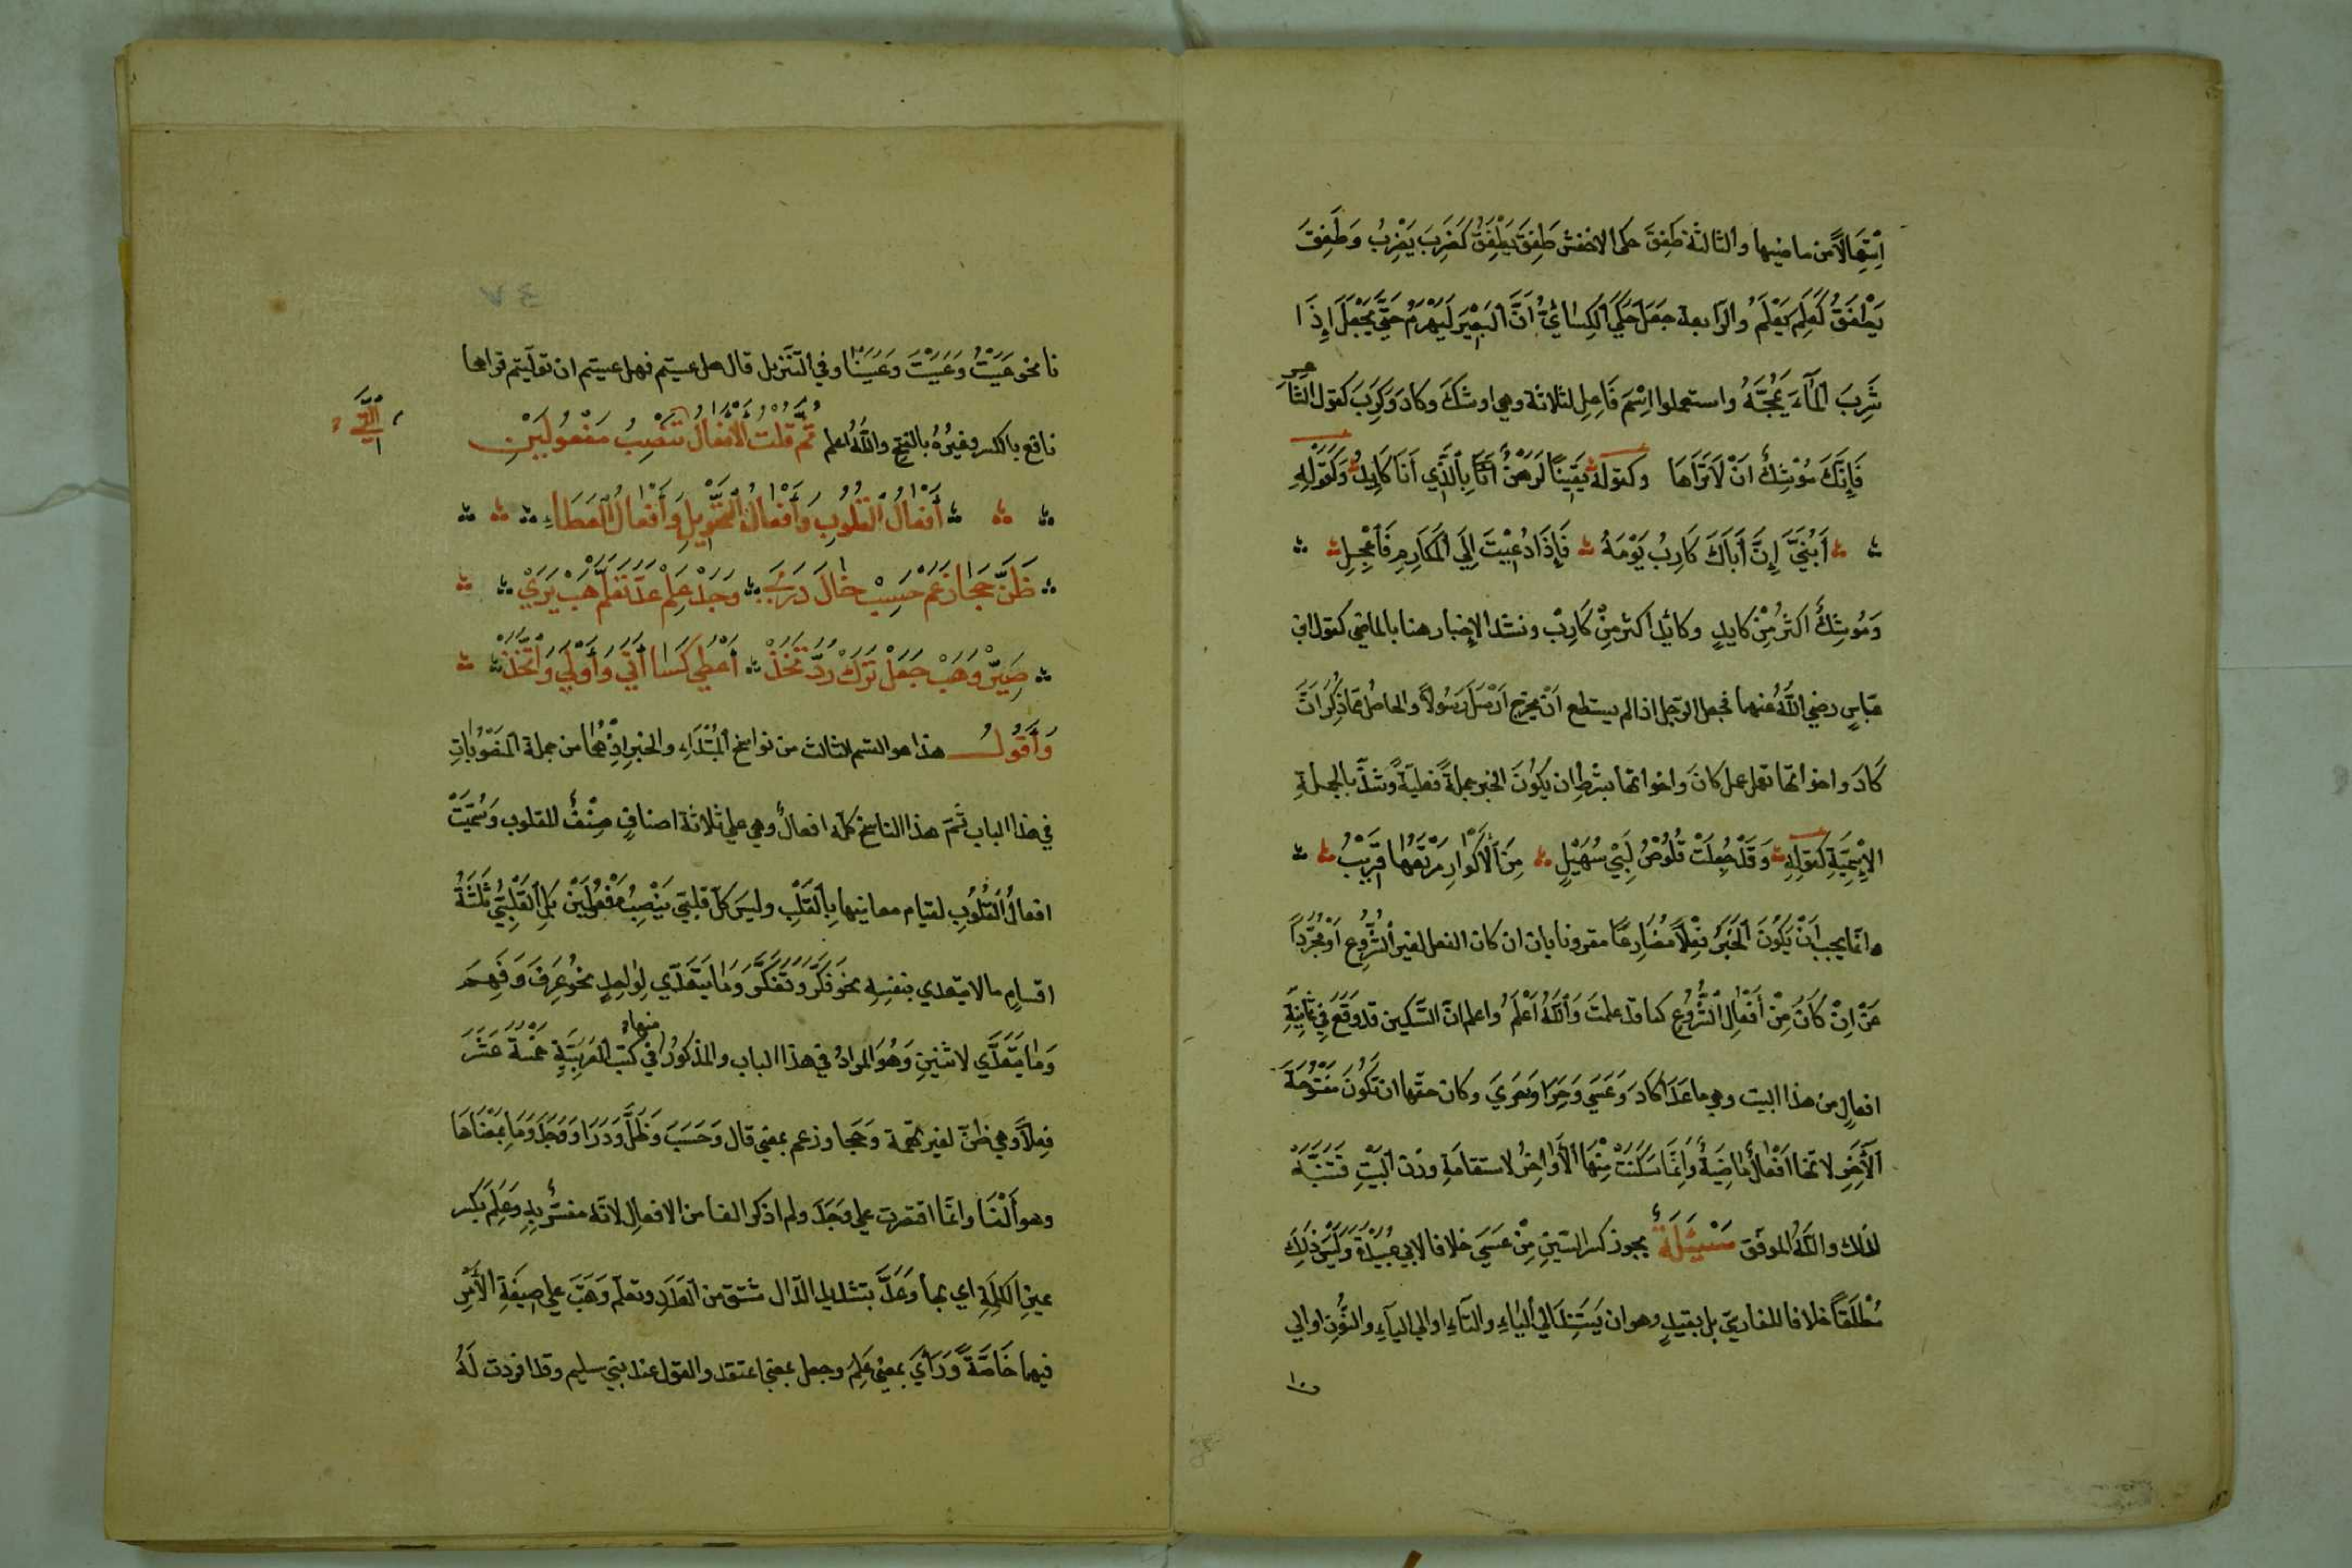 اِسْتِعْمَالاً من ماضيها والثالثة طَفِقَ حكى الاخفش طَفِقَ يَطْفِقُ كَضَرَبَ يَضْرِبُ وَطَفِقَ
يَطْفَقُ كَعَلِمَ يَعْلَمُ والرابعة جَعَلَ حَكَي الكِسَائيُّ اَنَّ البَعِيْرَ لَيَهْرَمُ حَتَّى يَجْعَلَ اِذَا
شَرِبَ الْمَآءَ يَمُجَّهُ واستعملوا اِسْمَ فَاعِلٍ لثلاثة وهي اوشكَ وكادَ وَكَرَبَ كقول الشاعر
فَاِنَّكَ مُوْشِكٌ اَنْ لَا تَرَاهَا وكقوله يَقِيْنًا لَرَهْنٌ بِالَّذِي اَنَا كَايِدُ وَكَقَوْلِهِ
أَبُنَيَّ إِنَّ أَبَاكَ كَارِبُ يَوْمَهُ فَاِذَا دُعِيْتَ اِلَي الْمَكَارِمِ فَاعْجِلِ
وَمُوشِكٌ اكثرُ مِنْ كايدٍ وكايدٌ اكثر مِنْ كَارِبْ وشذ الاخبار هنا بالماضي كقول ابن
عبّاسٍ رضي اللّٰه عنهما فجعل الرّجل اذا لم يستطع اَنْ يخرج اَرْسَلَ رَسُولاً والحاصل ممّا ذُكِرَ اَنَّ
كَادَ واخواتها تعمل عمل كانَ واخواتها بشرط ان يكُونَ الخبر جملةً فعليّةً وشذّ بالجملةِ
الاِسْمِيَّةِ كقولِهِ وَقَدْ جُعِلَتْ قُلُوْصُ بَنِيْ سُهَيْلٍ مِنَ الْاَكْوَارِ مَرْتَعُهَا قَرِيْبُ
وانّما يجب اَنْ يَكُوْنَ الْخَبَرُ فِعْلاً مُضَارِعًا مقرونا بان ان كان الفعل لغير الشُّرُوعِ اَوْ مجُرَّداً
عَنْ اِنْ كَانَ مِنْ أَفْعَالِ الشُّرُوعِ كما قد علمتَ وَاللّٰهُ اَعْلَمُ واعلم انّ التسكين قد وَقَعَ فِي ثمانيةِ
افعالٍ من هذا البيت وهي ما عَدَا كَادَ وَعَسَي وَحَرَا وَحَرِيَ وكان حقّها ان تَكُونَ مَفْتُوْحَةَ
الْآخِرِ لانّها اَفْعَالٌ مَاضِيَةٌ وَاِنَّمَا سَكَنَتْ مِنْهَا الْأَوَاخِرُ لاستقامَةِ وزن البَيْتِ فَتَنَبَّهْ
لذلك واللّٰهُ الموفّق مَسْئِلَةٌ يجوز كسر السّين مِنْ عَسَي خلافا لابي عُبَيْدَةَ وَلَيْسَ ذَلِكَ
مُطْلَقًا خلافا للفارسيّ بل بقيدٍ وهو ان يَسْتَنِدَ الي اليَاءِ والتآءِ او الي اليآءِ والنُّونِ او الي
نا نحو عَسَيْتُ وَعَسَيْتَ وَعَسَيْنَا وفي التّنزيل قال هل عسيتم فهل عسيتم ان تولّيتم قراهما
نافع بالكسر وغيرُهُ بالفتح واللّٰهُ اعلم ثُمَّ قلت الْأَفْعَالُ تَنْصِبُ مَفْعُولَيْنِ
أَفْعَالُ القُلُوبِ وَأَفْعَالُ التَّحْوِيْلِ وَأَفْعَالُ الْعَطَاءِ
ظَنَّ حَجَا زَعَمْ حَسِبْ خَالَ دَرَي وَجَدْ عَلِمْ عَدّ تَعَلَّمْ هَبْ يَرَيْ
صَيَّرْ وَهَبْ جَعَلْ تَرَكْ رَدَّ تَخَذْ اَعْطَي كَسَا اَتَي وَأَوْلَي وَاتَّخَذْ
وَأَقُولُ هذا هو القسم الثالث من نواسخ الْمُبْتَدَاءِ والخبر اِذْ هُمَا من جملة المنصُوْبَاتِ
في هذا الباب ثمَّ هذا الناسخ كلّه افعالٌ وهي علي ثلاثة اصنافٍ صِنْفٌ للقلوب وَسُمِّيَتْ
افعالُ الْقُلُوبِ لقيام معانيها بِالْقَلْبِ وليسَ كلّ قلبيّ يَنْصِبُ مَفْعُوْلَيْنِ بَلِ الْقَلْبِيُّ ثَلَثَةُ
اقسامٍ ما لا يتعدي بنفسِهِ نحو فَكَّرَ وَتَفَكَّرَ وَمَا يَتَعَدَّي لِوَاحِدٍ نحوُ عَرَفَ وَفَهِمَ
وَمَا يَتَعَدَّي لاثنينِ وَهُوَ المرادُ في هذا الباب والمذكورُ منها في كتب الْعَرَبِيَّةِ خمْسَةَ عَشَرَ
فِعْلاً وهي ظنّ لغير تهمة وَحجا وزعم بمعني قال وَحَسَبَ وَظَنَّ وَدَرَا وَوَجَدَ وَمَا بِمَعْنَاهَا
وهو أَلْفَا وانّما اقتصرت علي وَجَدَ ولم اذكر الفا من الافعال لانّه مفسّرٌ بِهِ وَعَلِمَ بكسر
عين الكلِمَةِ اي بها وَعَدَّ بتشديد الدّال مشتق من العَدَدِ وتعلم وَهَبْ علي صِيغَةِ الأَمْرِ
فيهما خَاصَّةً وَرَأَيَ بمعني عَلِمَ وجعل بمعني اعتقد والقول عند بني سليم وقد افردت لَهُ